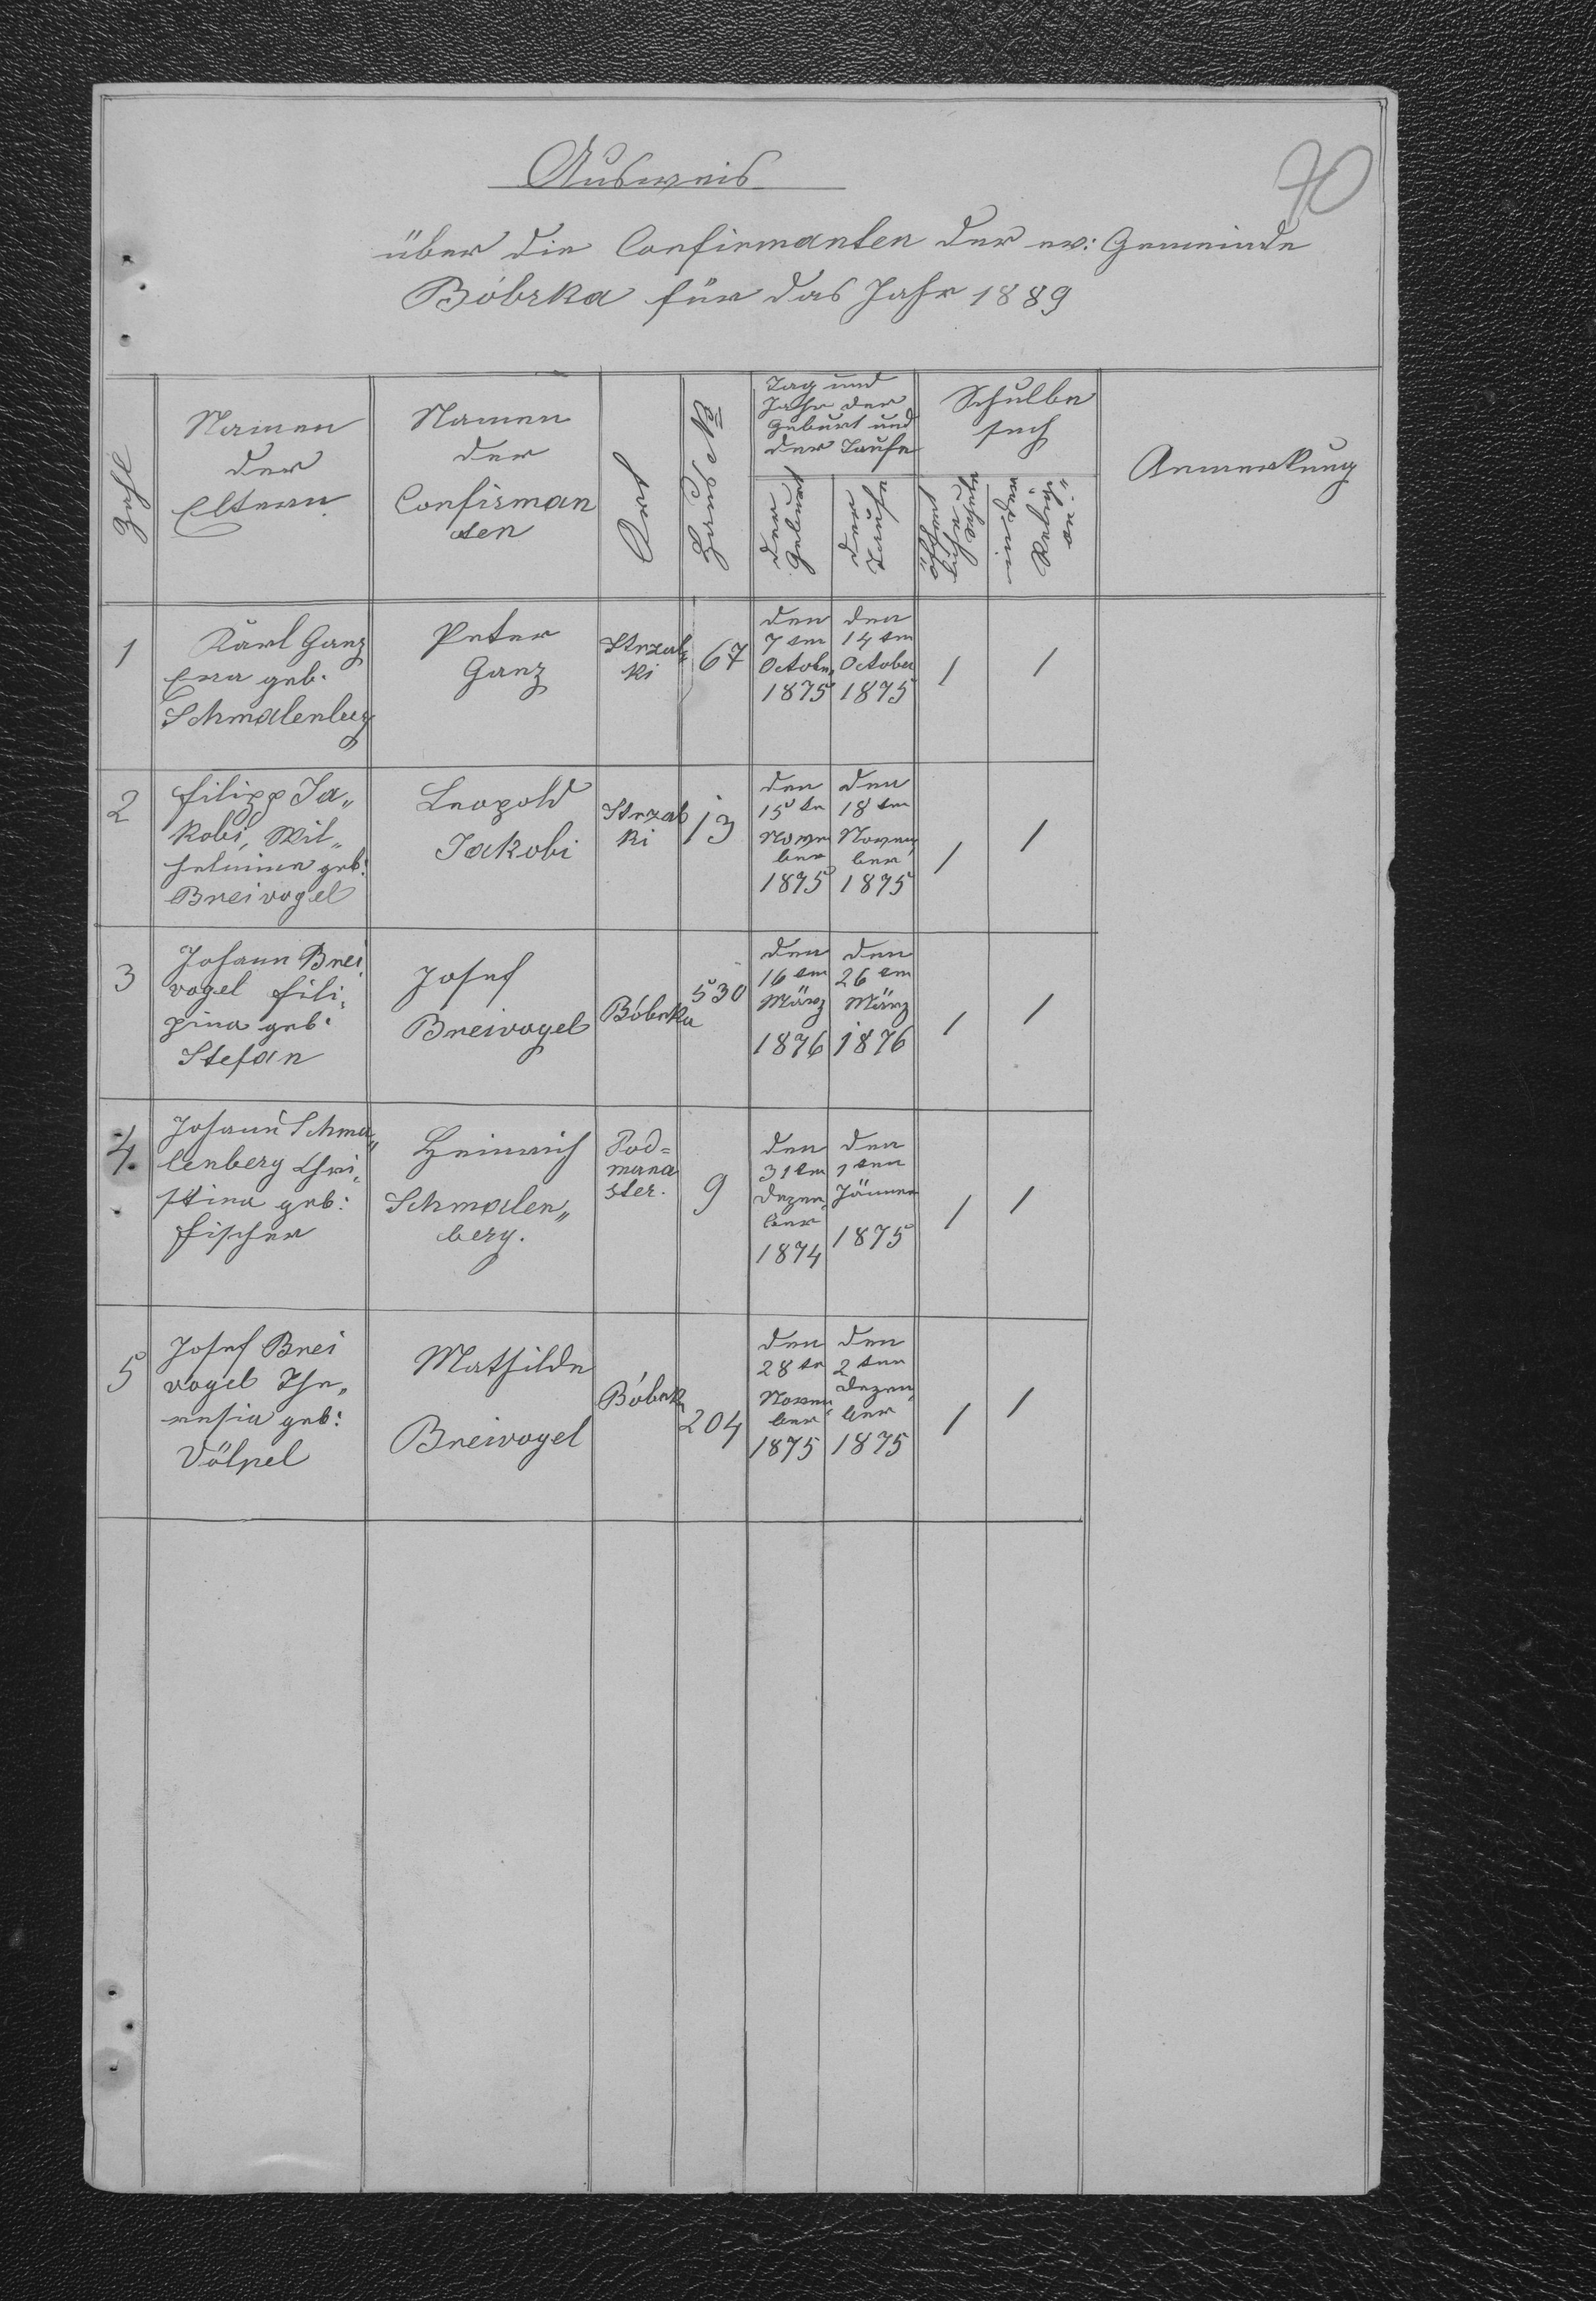 70
Ausweis
über die Confirmanten der ev: Gemeinde
Bóbrka für das Jahr 1889
Zahl
Namen
der
Eltern
Namen
der
Confirman
ten
Ort
Haus No
Tag und
Jahr der
Geburt und
der Taufe
der
Geburt
der
Taufe
Schulbe
such
öffent
liche
Schule
in der
Religi„
on
Anmerkung
1
Karl Ganz
Eva geb.
Schmalenberg
Peter
Ganz
Strzal„
ki
67
den
7 ten
October
1875
den
14 ten
October
1875
1
1
2
Filipp Ja„
kobi, Wil„
helmine geb:
Breivogel
Leopold
Jakobi
Strzal
ki
13
den
15 te
Novem
ber
1875
den
18 ten
Novem
ber
1875
1
1
3
Johann Brei
vogel Fili„
pina geb:
Stefan
Josef
Breivogel
Bóbrka
530
den
16 ten
März
1876
den
26 ten
März
1876
1
1
4.
Johann Schma„
lenberg Chri„
stina geb:
Fischer
Heinrich
Schmalen„
berg.
Pod=
mana
ster.
9
den
31 ten
Dezem„
ber
1874
den
1 ten
Jänner
1875
1
1
5
Josef Brei
vogel The„
resia geb:
Völpel
Mathilde
Breivogel
Bóbrka
204
den
28 te
Novem„
ber
1875
den
2 ten
Dezem„
ber
1875
1
1